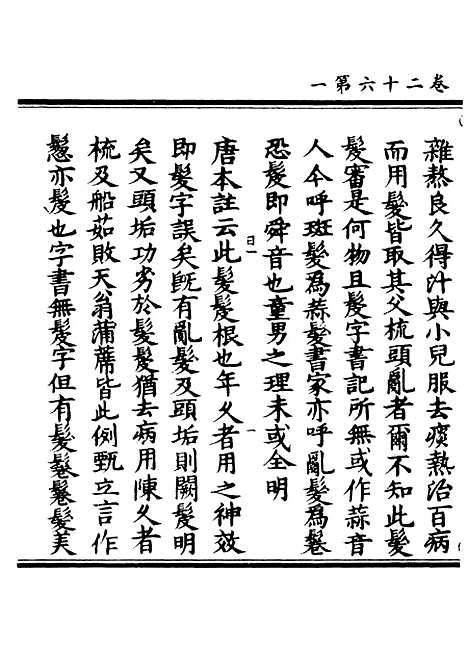 卷二十六第一
雜熬良久得汁與小兒服去痰熱治百病
而用髮皆取其父梳頭亂者爾不知此髮
髮審是何物且髲字書記所無或作蒜音
人今呼斑髮為蒜髮書家亦呼亂髮為鬈
恐髲即舜音也童男之理未或全明
唐本註云此髮髲根也年久者用之神效
即髮字誤矣既有亂髮及頭垢則闕髮明
矣又頭垢功劣於髮髮猶去病用陳久者
梳及船茹敗天翁蒲蓆皆此例甄立言作
鬉亦髮也字書無髲字但有髮鬈鬈髮美